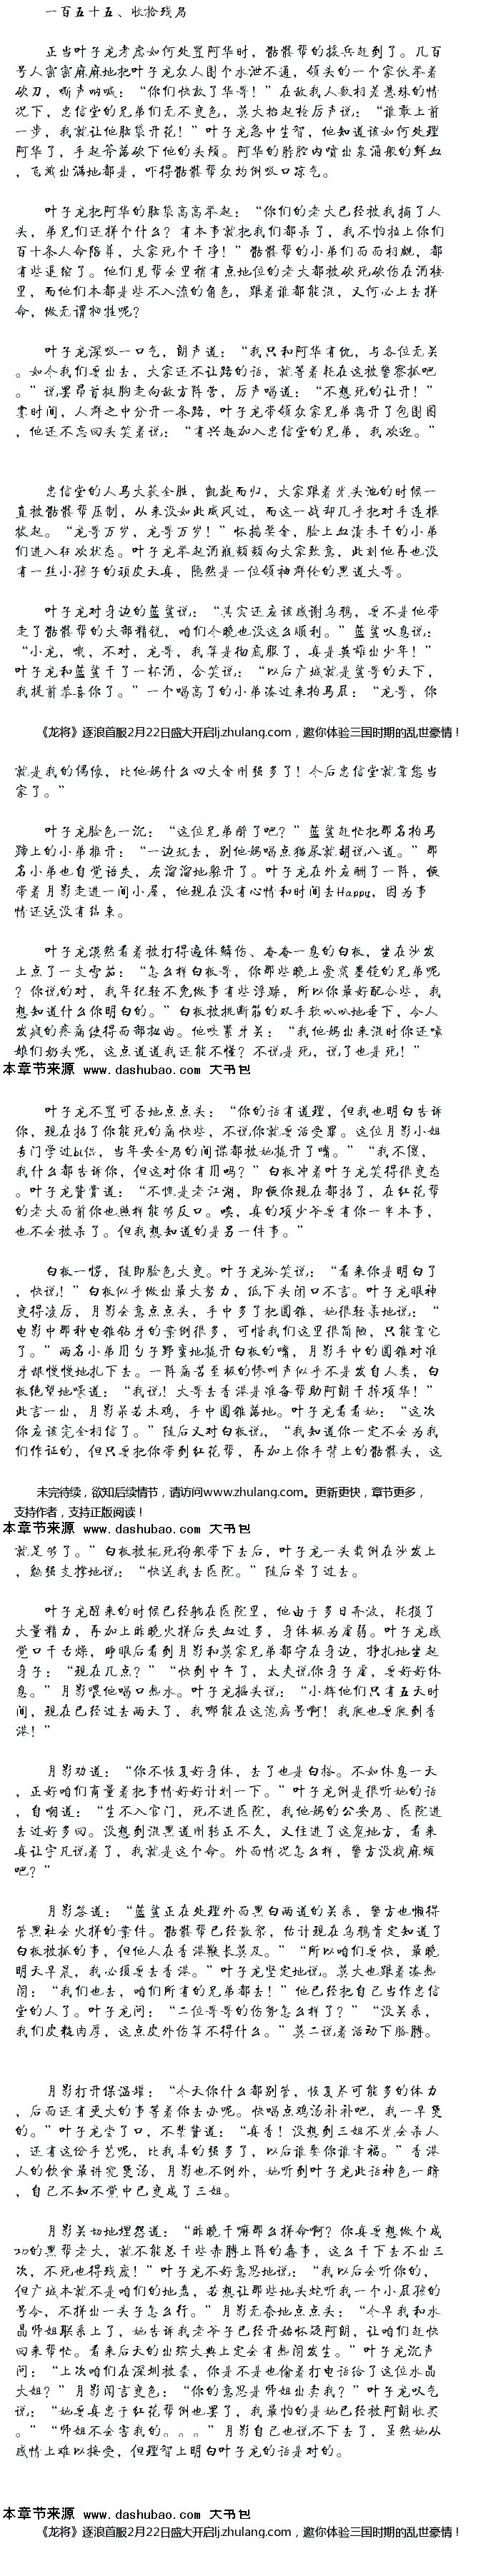 一百五十五、收拾残局
正当叶子龙考虑如何处置阿华时，骷髅帮的援兵赶到了。几百
号人密密麻麻地把叶子龙众人围个水泄不通，领头的一个家伙举着
砍刀，嘶声呐喊：“你们快放了华哥！”在敌我人数相差悬殊的情
况下，忠信堂的兄弟们无不变色，莫大抬起枪厉声说：“谁敢上前
一步，我就让他脑袋开花！”叶子龙急中生智，他知道该如何处理
阿华了，手起斧落砍下他的头颅。阿华的脖腔内喷出泉涌般的鲜血
，飞溅出满地都是，吓得骷髅帮众均倒吸口凉气。
叶子龙把阿华的脑袋高高举起：“你们的老大已经被我摘了人
头，弟兄们还拼个什么？有本事就把我们都杀了，我不怕拉上你们
百十条人命陪葬，大家死个干净！”骷髅帮的小弟们面面相觑，都
有些退缩了。他们见帮会里稍有点地位的老大都被砍死砍伤在酒楼
里，而他们本都是些不入流的角色，跟着谁都能混，又何必上去拼
命，做无谓牺牲呢？
叶子龙深吸一口气，朗声道：“我只和阿华有仇，与各位无关
。如今我们要出去，大家还不让路的话，就等着耗在这被警察抓吧
。”说罢昂首挺胸走向敌方阵营，厉声喝道：“不想死的让开！”
霎时间，人群之中分开一条路，叶子龙带领众家兄弟离开了包围圈
，他还不忘回头笑着说：“有兴趣加入忠信堂的兄弟，我欢迎。”
忠信堂的人马大获全胜，凯旋而归，大家跟着光头池的时候一
直被骷髅帮压制，从来没如此威风过，而这一战却几乎把对手连根
拔起。“龙哥万岁，龙哥万岁！”怀揣奖金，脸上血渍未干的小弟
们进入狂欢状态。叶子龙举起酒瓶频频向大家致意，此刻他再也没
有一丝小孩子的顽皮天真，隐然是一位领袖群伦的黑道大哥。
叶子龙对身边的蓝鲨说：“其实还应该感谢乌鸦，要不是他带
走了骷髅帮的大部精锐，咱们今晚也没这么顺利。”蓝鲨叹息说：
“小龙，哦，不对，龙哥，我算是彻底服了，真是英雄出少年！”
叶子龙和蓝鲨干了一杯酒，含笑说：“以后广城就是鲨哥的天下，
我提前恭喜你了。”一个喝高了的小弟凑过来拍马屁：“龙哥，你
《龙将》逐浪首服2月22日盛大开启lj.zhulang.com，邀你体验三国时期的乱世豪情！
就是我的偶像，比他妈什么四大金刚强多了！今后忠信堂就靠您当
家了。”
叶子龙脸色一沉：“这位兄弟醉了吧？”蓝鲨赶忙把那名拍马
蹄上的小弟推开：“一边玩去，别他妈喝点猫尿就胡说八道。”那
名小弟也自觉语失，灰溜溜地躲开了。叶子龙在外应酬了一阵，便
带着月影走进一间小屋，他现在没有心情和时间去Happy，因为事
情还远没有结束。
叶子龙漠然看着被打得遍体鳞伤、奄奄一息的白板，坐在沙发
上点了一支雪茄：“怎么样白板哥，你那些晚上爱戴墨镜的兄弟呢
？你说的对，我年纪轻不免做事有些浮躁，所以你最好配合些，我
想知道什么你明白的。”白板被挑断筋的双手软趴趴地垂下，令人
发疯的疼痛使得面部扭曲。他咬紧牙关：“我他妈出来混时你还嗦
娘们奶头呢，这点道道我还能不懂？不说是死，说了也是死！”
本章节来源 www.dashubao.com 大书包
叶子龙不置可否地点点头：“你的话有道理，但我也明白告诉
你，现在招了你能死的痛快些，不说你就要活受罪。这位月影小姐
专门学过逼供，当年安全局的间谍都被她撬开了嘴。”“我不傻，
我什么都告诉你，但这对你有用吗？”白板冲着叶子龙笑得很变态
。叶子龙赞赏道：“不愧是老江湖，即便你现在都招了，在红花帮
的老大面前你也照样能够反口。唉，真的项少爷要有你一半本事，
也不会被杀了。但我想知道的是另一件事。”
白板一愣，随即脸色大变。叶子龙冷笑说：“看来你是明白了
，快说！”白板似乎做出最大努力，低下头闭口不言。叶子龙眼神
变得凌厉，月影会意点点头，手中多了把圆锥，她很轻柔地说：“
电影中那种电锥钻牙的案例很多，可惜我们这里很简陋，只能靠它
了。”两名小弟用勺子野蛮地撬开白板的嘴，月影手中的圆锥对准
牙龈慢慢地扎下去。一阵痛苦至极的惨叫声似乎不是发自人类，白
板绝望地嚎道：“我说！大哥去香港是准备帮助阿朗干掉项华！”
此言一出，月影呆若木鸡，手中圆锥落地。叶子龙看看她：“这次
你应该完全相信了。”随后又对白板说，“我知道你一定不会为我
们作证的，但只要把你带到红花帮，再加上你手背上的骷髅头，这
未完待续，欲知后续情节，请访问www.zhulang.com。更新更快，章节更多，
支持作者，支持正版阅读！
本章节来源 www.dashubao.com 大书包
就足够了。”白板被拖死狗般带下去后，叶子龙一头栽倒在沙发上
，勉强支撑地说：“快送我去医院。”随后晕了过去。
叶子龙醒来的时候已经躺在医院里，他由于多日奔波，耗损了
大量精力，再加上昨晚火拼后失血过多，身体极为虚弱。叶子龙感
觉口干舌燥，睁眼后看到月影和莫家兄弟都守在身边，挣扎地坐起
身子：“现在几点？”“快到中午了，大夫说你身子虚，要好好休
息。”月影喂他喝口热水。叶子龙摇头说：“小辉他们只有五天时
间，现在已经过去两天了，我哪能在这泡病号啊！我爬也要爬到香
港！”
月影劝道：“你不恢复好身体，去了也是白搭。不如休息一天
，正好咱们商量着把事情好好计划一下。”叶子龙倒是很听她的话
，自嘲道：“生不入官门，死不进医院，我他妈的公安局、医院进
去过好多回。没想到混黑道刚转正不久，又住进了这鬼地方，看来
真让宇凡说着了，我就是这个命。外面情况怎么样，警方没找麻烦
吧？”
月影答道：“蓝鲨正在处理外面黑白两道的关系，警方也懒得
管黑社会火拼的案件。骷髅帮已经散架，估计现在乌鸦肯定知道了
白板被抓的事，但他人在香港鞭长莫及。”“所以咱们要快，最晚
明天早晨，我必须要去香港。”叶子龙坚定地说。莫大也跟着凑热
闹：“我们也去，咱们所有的兄弟都去！”他已经把自己当作忠信
堂的人了。叶子龙问：“二位哥哥的伤势怎么样了？”“没关系，
我们皮糙肉厚，这点皮外伤算不得什么。”莫二说着活动下胳膊。
月影打开保温罐：“今天你什么都别管，恢复尽可能多的体力
，后面还有更大的事等着你去办呢。快喝点鸡汤补补吧，我一早煲
的。”叶子龙尝了口，不禁赞道：“真香！没想到三姐不光会杀人
，还有这份手艺呢，比我真的强多了，以后谁娶你谁幸福。”香港
人的饮食最讲究煲汤，月影也不例外，她听到叶子龙此话神色一暗
，自己不知不觉中已变成了三姐。
月影关切地埋怨道：“昨晚干嘛那么拼命啊？你真要想做个成
功的黑帮老大，就不能总干些赤膊上阵的蠢事，这么干下去不出三
次，不死也得残废！”叶子龙不好意思地说：“我以后会听你的，
但广城本就不是咱们的地盘，若想让那些地头蛇听我一个小屁孩的
号令，不拼出一头子怎么行。”月影无奈地点点头：“今早我和水
晶师姐联系上了，她告诉我老爷子已经开始怀疑阿朗，让咱们赶快
回来帮忙。看来后天的出殡大典上定会有热闹发生。”叶子龙沉声
问：“上次咱们在深圳被袭，你是不是也偷着打电话给了这位水晶
大姐？”月影闻言变色：“你的意思是师姐出卖我？”叶子龙叹气
说：“她要真忠于红花帮倒也罢了，我最怕的是她已经被阿朗收买
。”“师姐不会害我的。。。”月影自己也说不下去了，虽然她从
感情上难以接受，但理智上明白叶子龙的话是对的。
本章节来源 www.dashubao.com 大书包
《龙将》逐浪首服2月22日盛大开启lj.zhulang.com，邀你体验三国时期的乱世豪情！